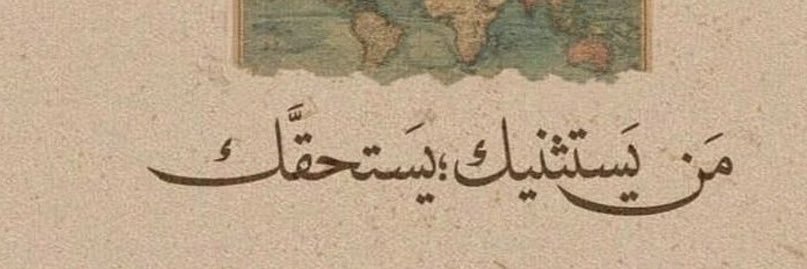 مَن يَستثنيك؛يَستحقَّك